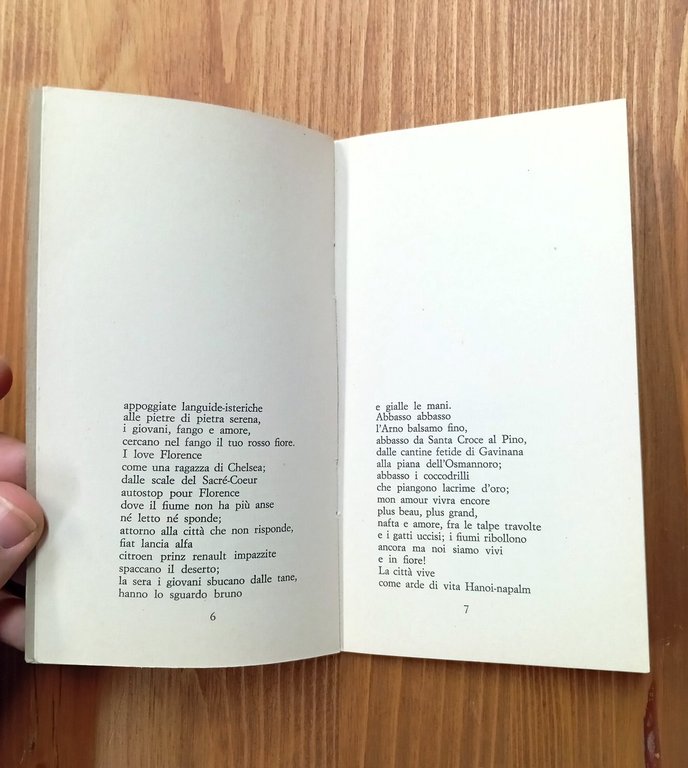 appoggiate languide-isteriche
alle pietre di pietra serena,
i giovani, fango e amore,
cercano nel fango il tuo rosso fiore.
I love Florence
come una ragazza di Chelsea;
dalle scale del Sacré-Coeur
autostop pour Florence
dove il fiume non ha più anse
né letto né sponde;
attorno alla città che non risponde,
fiat lancia alfa
citroen prinz renault impazzite
spaccano il deserto;
la sera i giovani sbucano dalle tane,
hanno lo sguardo bruno
6
e gialle le mani.
Abbasso abbasso
l'Arno balsamo fino,
abbasso da Santa Croce al Pino,
dalle cantine fetide di Gavinana
alla piana dell'Osmannoro;
abbasso i coccodrilli
che piangono lacrime d'oro;
mon amour vivra encore
plus beau, plus grand,
nafta e amore, fra le talpe travolte
e i gatti uccisi; i fiumi ribollono
ancora ma noi siamo vivi
e in fiore!
La città vive
come arde di vita Hanoi-napalm
7